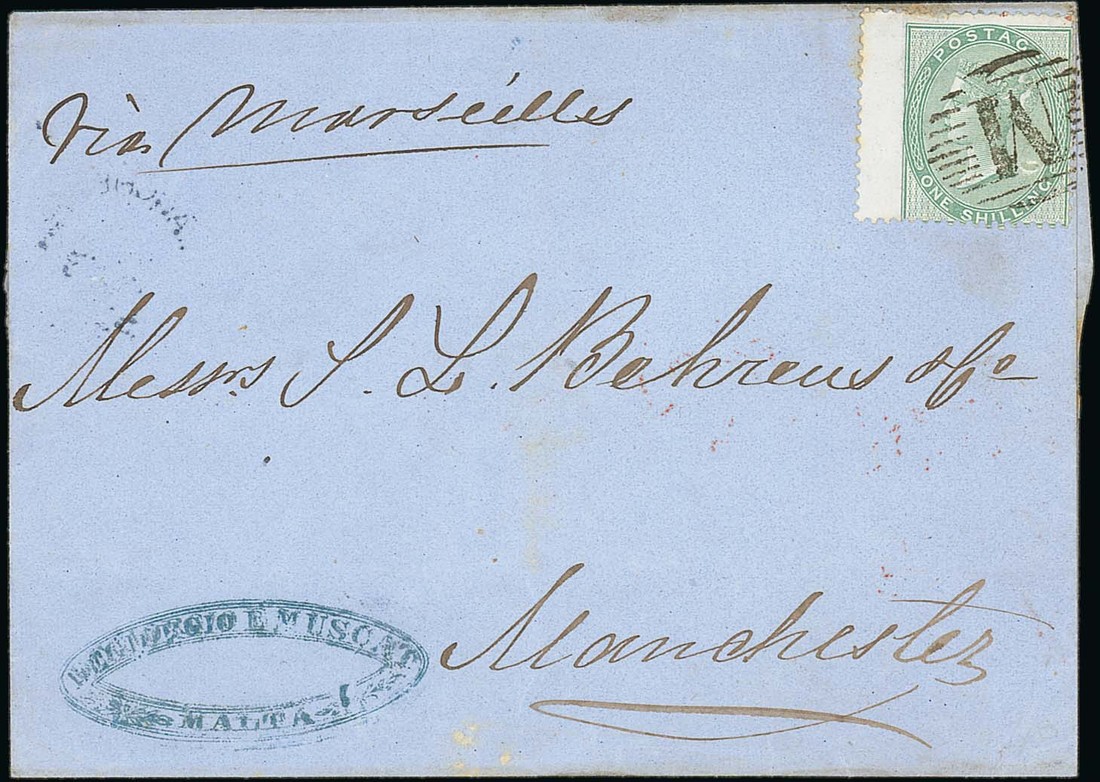 POSTAGE
M
ONE SHILLING
Via Marseilles
Messrs S. L. Behrens & Co
Manchester
E MUSCAT
MALTA